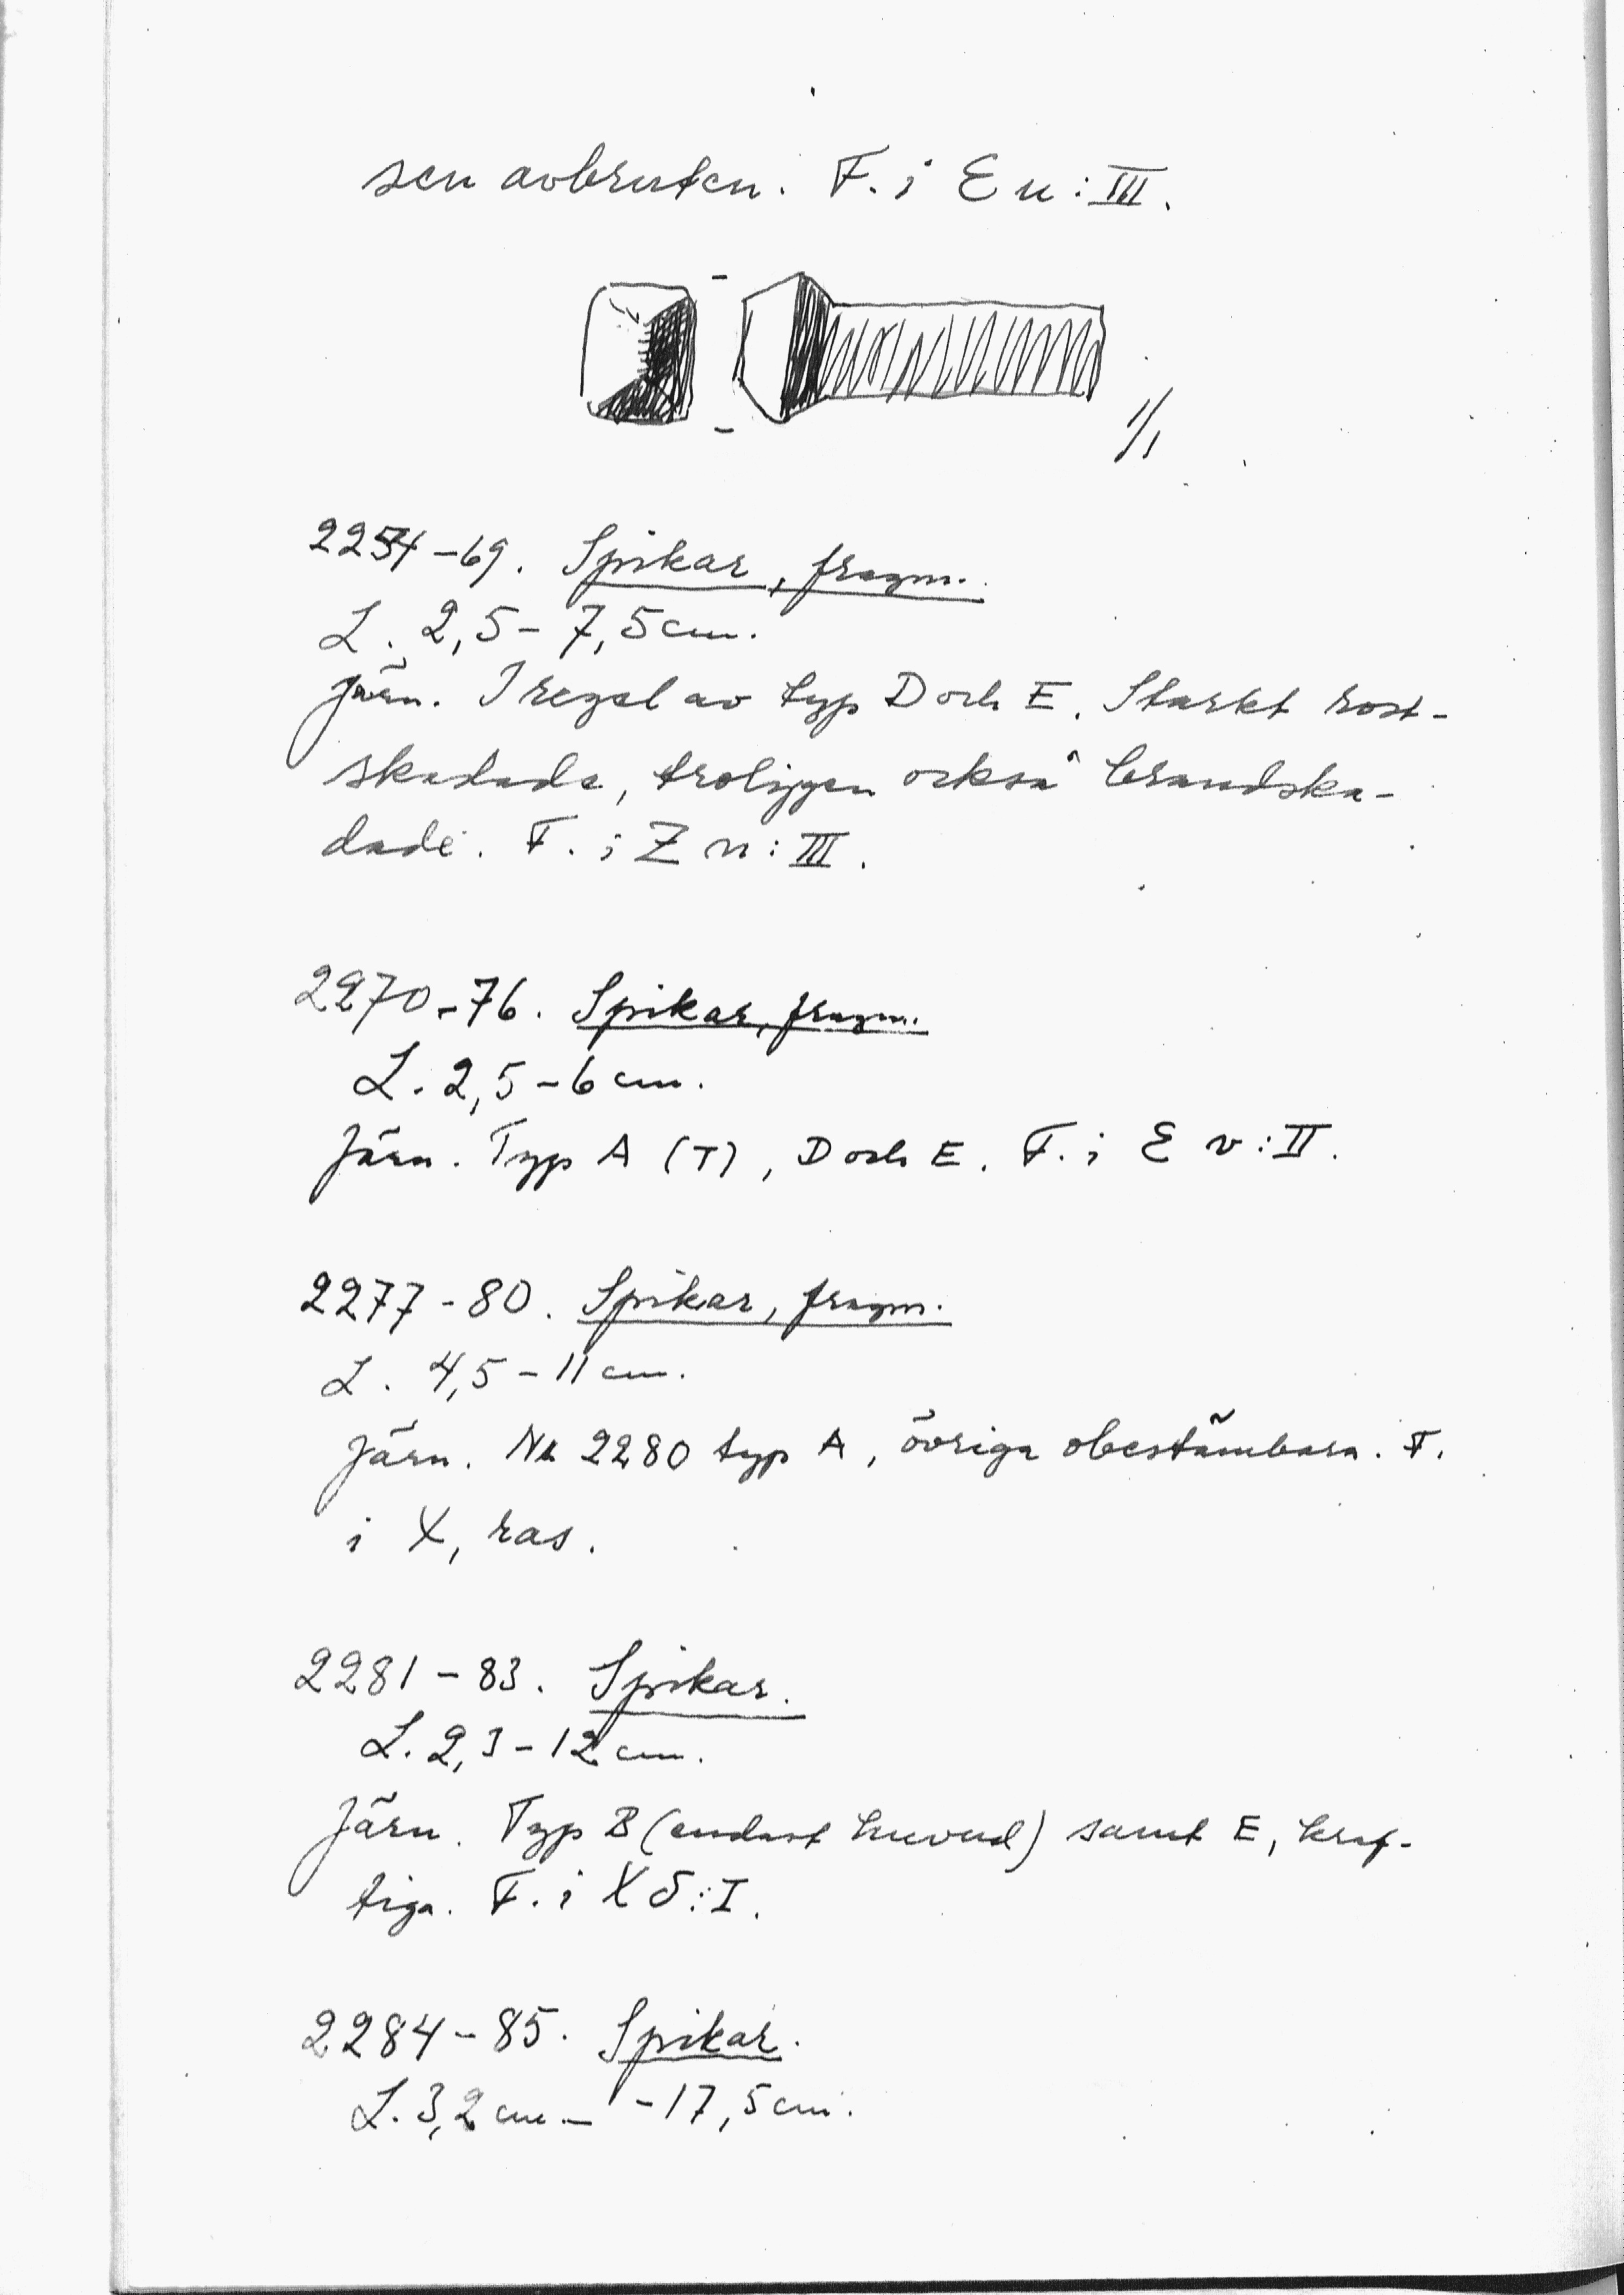 sen avbruten. F. i E u:III.
1/1
2254-69. Spikar, fragm.
L. 2,5-7,5 cm.
Järn. I regel av typ D och E. Starkt rost-
skadade, troligen också brandska-
dade. F. i Z n:III.
2270-76. Spikar, fragm.
L. 2,5-6 cm.
Järn. Typ A (T), D och E. F. i E v:II.
2277-80. Spikar, fragm.
L. 4,5-11 cm.
Järn. Nr 2280 typ A, övriga obestämbara. F.
i X, ras.
2281-83. Spikar.
L. 2,3-12 cm.
Järn. Typ B (endast huvud) samt E, kraf-
tiga. F. i X S:I.
2284-85. Spikar.
L. 3,2 cm - -17,5 cm.